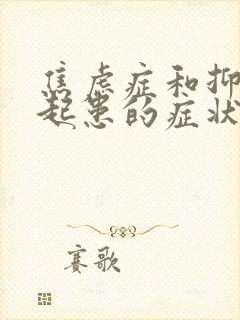 焦虑症和抑
起患的症状
赛歌